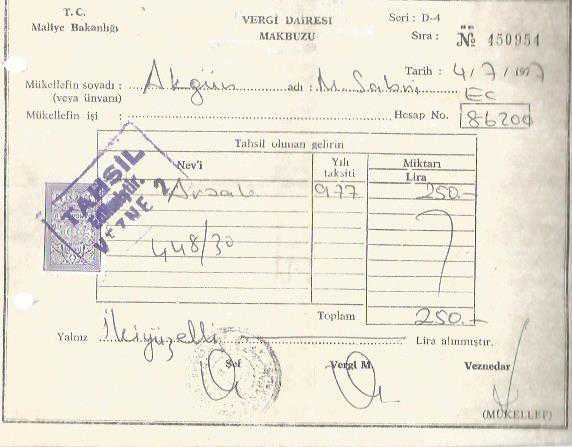 T. C.
Maliye Bakanlığı
VERGİ DAİRESİ
MAKBUZU
Seri : D-4
Sıra : № 450954
Tarih : 4/7/1977
Mükellefin soyadı : Akgün adı : M. Sabri
(veya ünvanı)
Ec
Mükellefin işi : Hesap No. 86200
Tahsil olunan gelirin
Nev'i Yılı taksiti Miktarı
Lira
Arsalı 977 250.-
448/30
TAHSİL
Edilmiştir.
VEZNE 2
Toplam 250.-
Yalnız İkiyüzelli Lira alınmıştır.
Şef Vergi M. Veznedar
(MÜKELLEF)